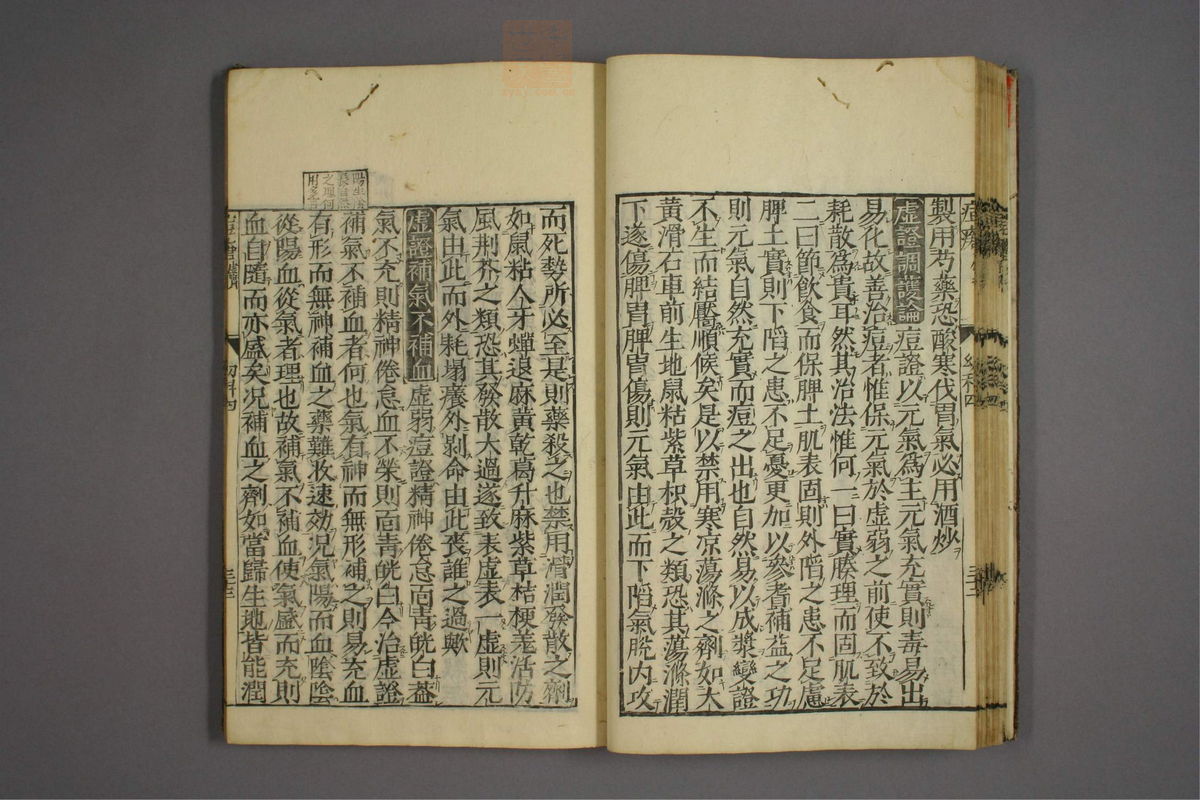 製用芍藥恐酸寒伐胃氣必用酒炒
虛證調護論痘證以元氣爲主元氣充實則毒易出
易化故善治痘者惟保元氣於虛弱之前使不致於
耗散爲貴耳然其治法惟何一曰實腠理而固肌表
二曰節飲食而保脾土肌表固則外陷之患不足慮
脾土實則下陷之患不足憂更加以參耆補益之功
則元氣自然充實而痘之出也自然易以成漿變證
不生而結靨順候矣是以禁用寒凉蕩滌之劑如大
黃滑石車前生地鼠粘紫草枳殼之類恐其蕩滌潤
下遂傷脾胃脾胃傷則元氣由此而下陷氣脫内攻
而死勢所必至是則藥殺之也禁用滑潤發散之劑
如鼠粘人牙蟬退麻黃乾葛升麻紫草桔梗羌活防
風荆芥之類恐其發散大過遂致表虛表一虛則元
氣由此而外耗塌癢外剝命由此喪誰之過歟
虛證補氣不補血虛弱痘證精神倦怠面靑㿠白蓋
氣不充則精神倦怠血不榮則面靑㿠白今治虛證
補氣不補血者何也氣有神而無形補之則易充血
有形而無神補血之藥難收速効况氣陽而血陰陰
從陽血從氣者理也故補氣不補血使氣盛而充則
血自隨而亦盛矣况補血之劑如當歸生地皆能潤
幼科四
三三